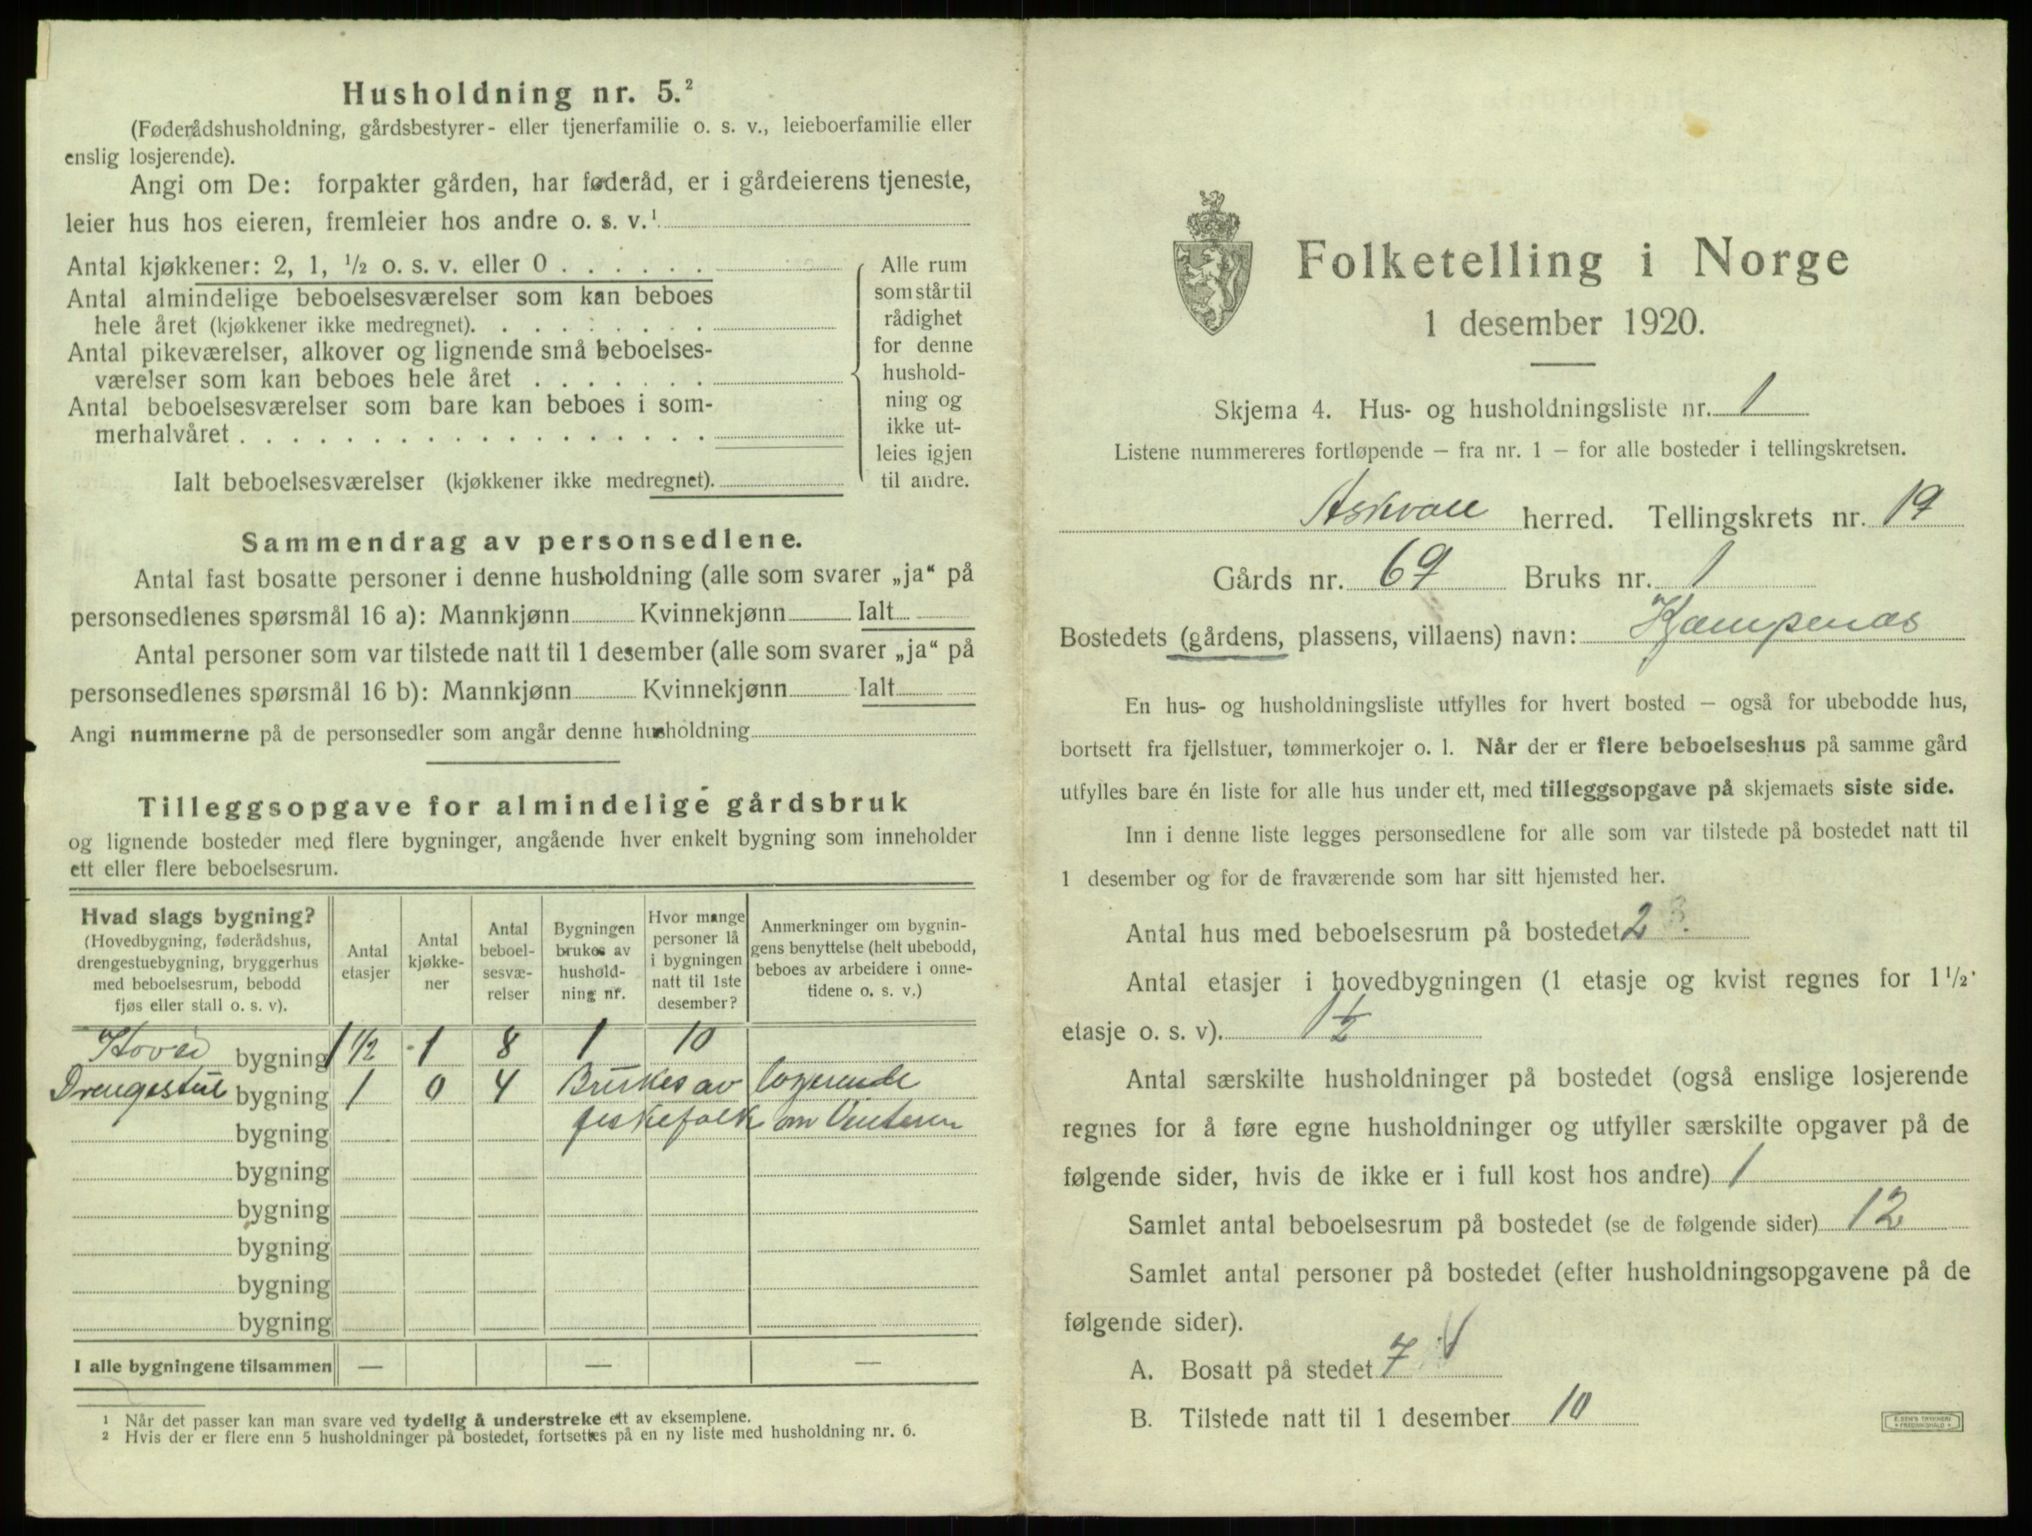 Husholdning nr. 5.²
(Føderådshusholdning, gårdsbestyrer- eller tjenerfamilie o. s. v., leieboerfamilie eller
enslig losjerende).
Angi om De: forpakter gården, har føderåd, er i gårdeierens tjeneste,
leier hus hos eieren, fremleier hos andre o. s. v.¹
Antal kjøkkener: 2, 1, ½ o. s. v. eller 0 . . . . . .
Antal almindelige beboelsesværelser som kan beboes
hele året (kjøkkener ikke medregnet). . . . . . . . .
Antal pikeværelser, alkover og lignende små beboelses-
værelser som kan beboes hele året . . . . . . .
Antal beboelsesværelser som bare kan beboes i som-
merhalvåret . . . . . . . . . . . . . . . . . .
Ialt beboelsesværelser (kjøkkener ikke medregnet).
Alle rum
som står til
rådighet
for denne
hushold-
ning og
ikke ut-
leies igjen
til andre.
Sammendrag av personsedlene.
Antal fast bosatte personer i denne husholdning (alle som svarer „ja“ på
personsedlenes spørsmål 16 a): Mannkjønn Kvinnekjønn Ialt
Antal personer som var tilstede natt til 1 desember (alle som svarer „ja“ på
personsedlenes spørsmål 16 b): Mannkjønn Kvinnekjønn Ialt
Angi nummerne på de personsedler som angår denne husholdning
Tilleggsopgave for almindelige gårdsbruk
og lignende bosteder med flere bygninger, angående hver enkelt bygning som inneholder
ett eller flere beboelsesrum.
Hvad slags bygning?
(Hovedbygning, føderådshus,
drengestuebygning, bryggerhus
med beboelsesrum, bebodd
fjøs eller stall o. s. v).
Antal
etasjer
Antal
kjøkke-
ner
Antal
beboel-
sesvæ-
relser
Bygningen
brukes av
hushold-
ning nr.
Hvor mange
personer lå
i bygningen
natt til 1ste
desember?
Anmerkninger om bygnin-
gens benyttelse (helt ubebodd,
beboes av arbeidere i onne-
tidene o. s. v.)
Hoved bygning 1½ 1 8 1 10
Drengestue bygning 1 0 4 Brukes av logerende
bygning fiskefolk om Vinteren
bygning
bygning
bygning
bygning
bygning
I alle bygningene tilsammen — — —
¹ Når det passer kan man svare ved tydelig å understreke ett av eksemplene.
² Hvis der er flere enn 5 husholdninger på bostedet, fortsettes på en ny liste med husholdning nr. 6.
Folketelling i Norge
1 desember 1920.
Skjema 4. Hus- og husholdningsliste nr. 1
Listene nummereres fortløpende – fra nr. 1 – for alle bosteder i tellingskretsen.
Askvoll herred. Tellingskrets nr. 19
Gårds nr. 69 Bruks nr. 1
Bostedets (gårdens, plassens, villaens) navn: Kjempenæs
En hus- og husholdningsliste utfylles for hvert bosted – også for ubebodde hus,
bortsett fra fjellstuer, tømmerkojer o. l. Når der er flere beboelseshus på samme gård
utfylles bare én liste for alle hus under ett, med tilleggsopgave på skjemaets siste side.
Inn i denne liste legges personsedlene for alle som var tilstede på bostedet natt til
1 desember og for de fraværende som har sitt hjemsted her.
Antal hus med beboelsesrum på bostedet 2
Antal etasjer i hovedbygningen (1 etasje og kvist regnes for 1½
etasje o. s. v). 1½
Antal særskilte husholdninger på bostedet (også enslige losjerende
regnes for å føre egne husholdninger og utfyller særskilte opgaver på de
følgende sider, hvis de ikke er i full kost hos andre) 1
Samlet antal beboelsesrum på bostedet (se de følgende sider) 12
Samlet antal personer på bostedet (efter husholdningsopgavene på de
følgende sider).
A. Bosatt på stedet 7
B. Tilstede natt til 1 desember 10
E. SEM'S TRYKKERI
FREDRIKSHALD